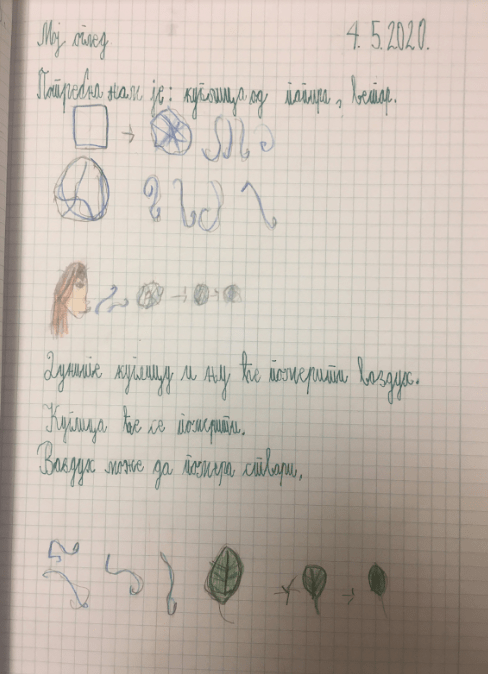 Мој оглед
4. 5. 2020.
Потребна нам је: куглица од папира, ветар.
Дунните куглицу и њу ће померити ваздух.
Куглица ће се померити.
Ваздух може да помера ствари.